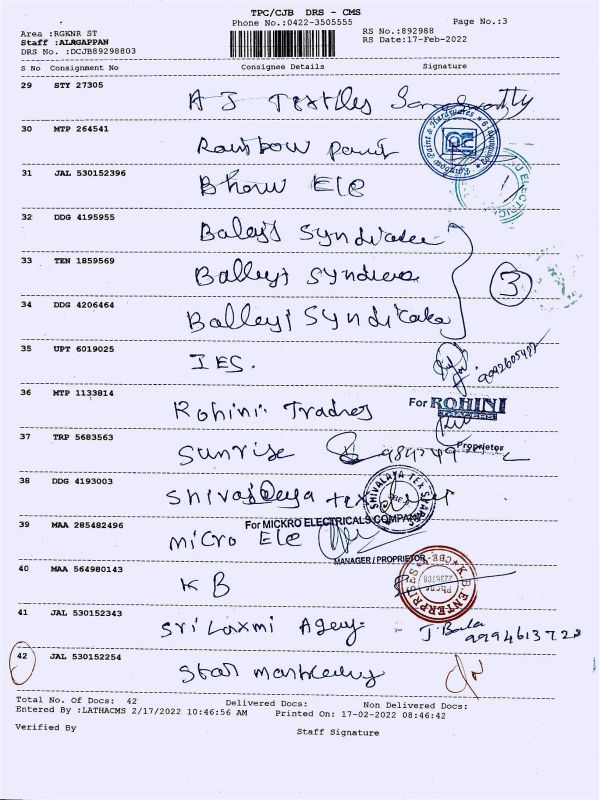 TPC/CJB DRS - CMS
Phone No.:0422-3505555 Page No.:3
Area :RGKNR ST RS No.:892988
Staff :ALAGAPPAN RS Date:17-Feb-2022
DRS No. :DCJB89298803
S No Consignment No Consignee Details Signature
29 STY 27305 A J Textiles
30 MTP 264541 Rainbow paint
31 JAL 530152396 Bhow Ele
32 DDG 4195955 Balaji Syndicate
33 TEN 1859569 Balleyi Syndicate
34 DDG 4206464 Balleyi Syndicate
3
35 UPT 6019025 IES. 9092605422
36 MTP 1133814 Rohini Tradres For ROHINI TRADERS
Proprietor
37 TRP 5683563 Sunrise
38 DDG 4193003 Shivalaya tex SHIVALAYA TEX
39 MAA 285482496 Micro Ele For MICKRO ELECTRICALS COMPANY
MANAGER / PROPRIETOR
40 MAA 564980143 K B K.B. ENTERPRISES CBE
41 JAL 530152343 Sri Laxmi Agency J Bala 9994613728
42 JAL 530152254 Star
Total No. Of Docs: 42 Delivered Docs: Non Delivered Docs:
Entered By :LATHACMS 2/17/2022 10:46:56 AM Printed On: 17-02-2022 08:46:42
Verified By Staff Signature